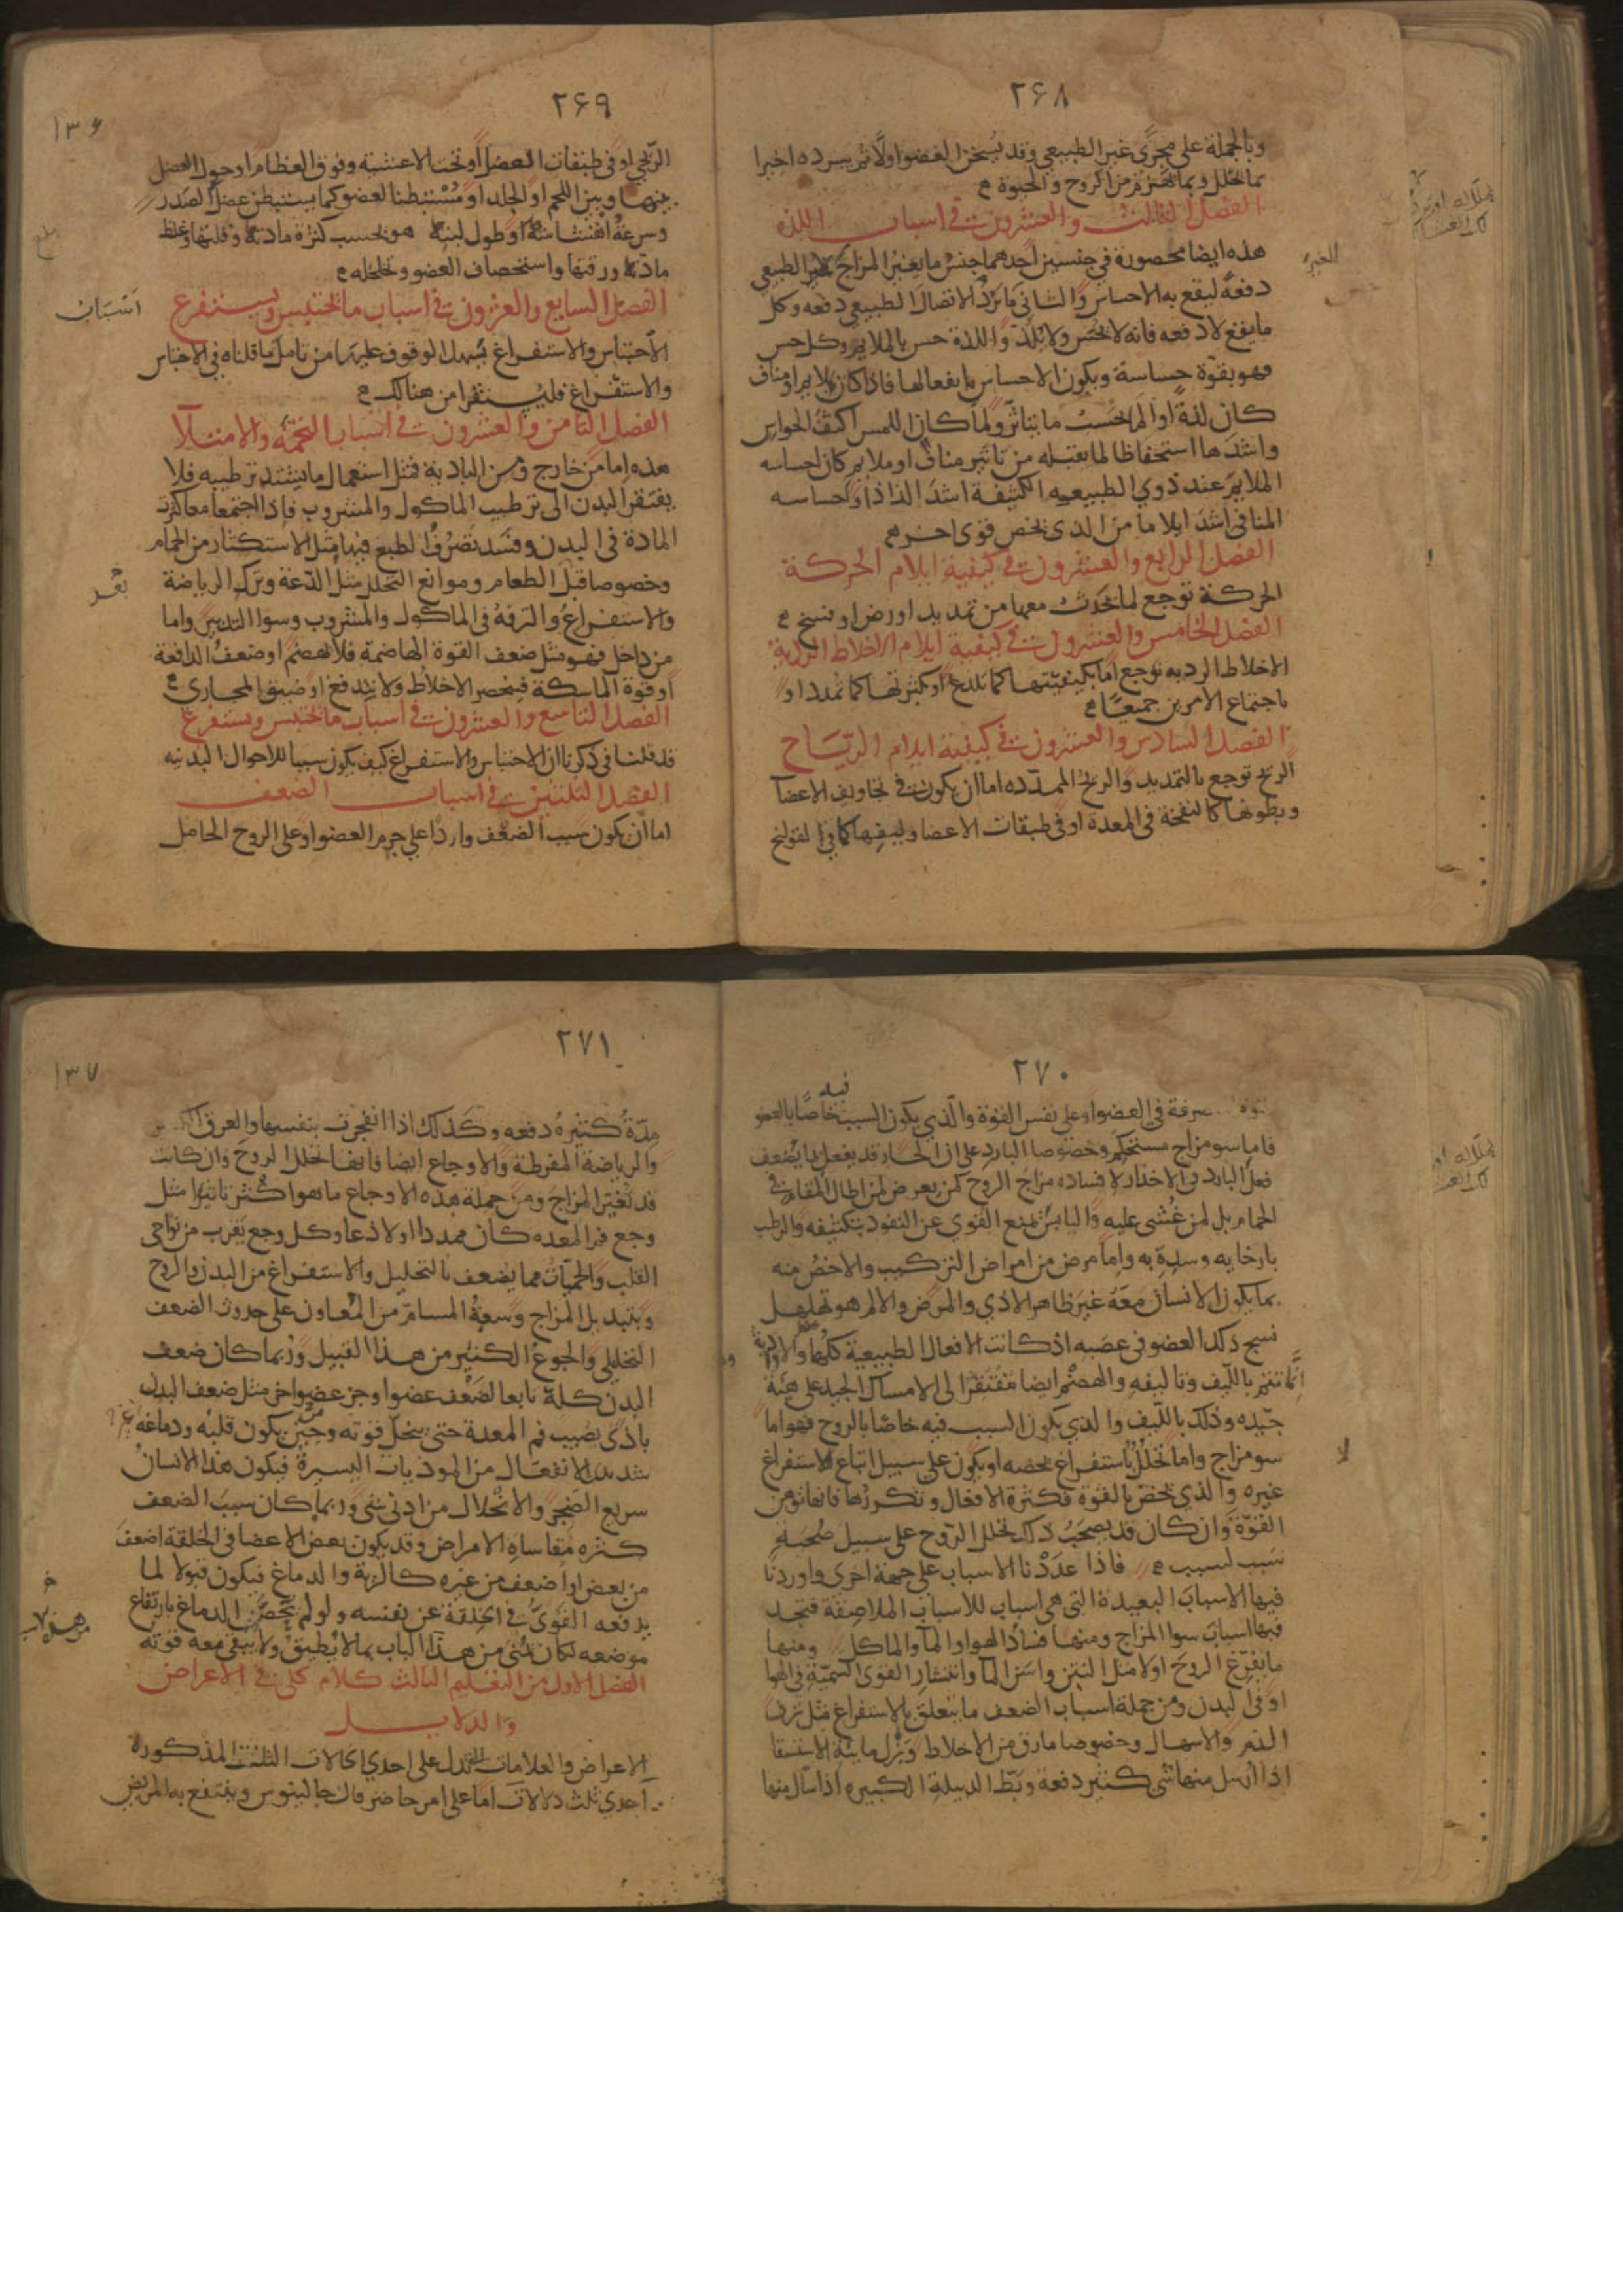 ٢۶٨
وبالجملة على مجرى غير الطبيعي وقد يسخن العضو اولا ثم يبرده اخيرا
بما يحلل وبما يهزم من الروح والحيوة
الفصل الثالث والعشرون في اسباب اللذه
هذه ايضا محصورة في جنسين احدهما جنس ما يغير المزاج الغير الطبيعي
دفعة ليقع به الاحساس والثاني ما يرد الاتصال الطبيعي دفعه وكل
ما يقع لا دفعه فانه لا يحس ولا يلذ واللذة حس بالملايم وكل حس
فهو بقوة حساسة ويكون الاحساس بانفعالها فاذا كان بملايم او مناف
كان لذة او الم بحسب ما يتاثر ولما كان اللمس اكثف الحواس
واشدها استحفاظا لما يقبله من تاثير مناف او ملايم كان احساسه
الملايم عند ذوي الطبيعيه الكثيفة اشد الذاذا واحساسه
المنافي اشد ايلاما من الذي يخص قوى اخر
الفصل الرابع والعشرون في كيفية ايلام الحركة
الحركة توجع لما يحدث معها من تمديد او رض او فسخ
الفصل الخامس والعشرون في كيفية ايلام الاخلاط الردية
الاخلاط الرديه توجع اما بكيفيتها كما تلدغ او بكثرتها كما تمدد او
باجتماع الامرين جميعا
الفصل السادس والعشرون في كيفية ايلام الرياح
الريح توجع بالتمديد والريح الممدده اما ان يكون في تجاويف الاعضا
وبطونها كالنفخة في المعدة او في طبقات الاعضا وليفها كما في القولنج
٢۶٩
١٣۶
الريحي او في طبقات العضل او تحت الاغشيه وفوق العظام او حول العضل
بينها وبين اللحم او الجلد او مستبطنا العضو كما يستبطن عضل الصدر
وسرعة انفشاشه او طول لبثه هو بحسب كثرة مادته وقلتها وغلظ
مادتها ورقتها واستحصاف العضو وتخلخله
الفصل السابع والعشرون في اسباب ما يحتبس ويستفرغ
اسباب
الاحتباس والاستفراغ يسهل الوقوف عليها من تامل ما قلناه في الاحتباس
والاستفراغ فليستقرا من هنالك
الفصل الثامن والعشرون في اسباب التخمة والامتلا
هذه اما من خارج ومن البادية فمثل استعمال ما يشتد ترطيبه فلا
يفتقر البدن الى ترطيب الماكول والمشروب فاذا اجتمعا معا كثرت
المادة في البدن وفسد تصرف الطبع فيها مثل الاستكثار من الحمام
وخصوصا قبل الطعام وموانع التحلل مثل الدعة وترك الرياضة
والاستفراغ والترفه في الماكول والمشروب وسوا التدبير واما
من داخل فهو مثل ضعف القوة الهاضمة فلا تهضم او ضعف الدافعة
او قوة الماسكة فتحصر الاخلاط ولا يندفع او ضيق المجاري
الفصل التاسع والعشرون في اسباب ما يحتبس ويستفرغ
قد قلنا في ذكرنا ان الاحتباس والاستفراغ كيف يكون سببا للاحوال البدنيه
الفصل الثلثين في اسباب الضعف
اما ان يكون سبب الضعف واردا على جرم العضو او على الروح الحامل
٢٧٠
في العضو او على نفس القوة والذي يكون السبب فيه خاصا بالعضو
فاما سو مزاج مستحكم وخصوصا البارد على ان الحار قد يفعل بما يضعف
فعل البارد في الاخدار لافساده مزاج الروح كمن يعرض لمن اطال المقام في
الحمام بل لمن غشى عليه واليابس يمنع القوى عن النفوذ بتكثيفه والرطب
بارخايه وسده به واما مرض من امراض التركيب والاخص منه
بما يكون الانسان معه غير ظاهر الاذي والمرض والالم هو تهلهل
نسج ذلك العضو في عصبه اذ كانت الافعال الطبيعية كلها والارادية
انما تتم بالليف وتاليفه والهضم ايضا مفتقر الى الامساك الجيد على هيئة
جيده وذلك بالليف والذي يكون السبب فيه خاصا بالروح فهو اما
سو مزاج واما تحلل باستفراغ يخصه او يكون على سبيل اتباع الاستفراغ
غيره والذي يختص بالقوة فكثرة الافعال وتكررها فانها توهن
القوة وان كان قد يصحب ذلك تحلل الروح على سبيل صحبة
سبب لسبب فاذا عددنا الاسباب على جهة اخرى واوردنا
فيها الاسباب البعيدة التي هي اسباب للاسباب الملاصقة فيتجد
فيها اسباب سوا المزاج ومنها فساد الهوا والما والماكل ومنها
ما يفزع الروح اولا مثل النتن واسن الما وانتشار القوى السمية في الهوا
او في البدن ومن جملة اسباب الضعف ما يتعلق بالاستفراغ مثل نزف
الدم والاسهال وخصوصا ما رق من الاخلاط وبزل مايية الاستسقا
اذا ارسل منها شي كثير دفعة وبط الدبيلة الكبيره اذا سال منها
٢٧١
١٣٧
مدة كثيره دفعه وكذلك اذا انفجرت بنفسها والعرق
والرياضة المفرطة والاوجاع ايضا فانها تحلل الروح وان كانت
قد تغير المزاج ومن جملة هذه الاوجاع ما هو اكثر تاثيرا مثل
وجع فم المعده كان ممددا او لاذعا وكل وجع يقرب من نواحي
القلب والحميات مما يضعف بالتحليل والاستفراغ من البدن والروح
وتبديل المزاج وسعة المسام من المعاون على حدوث الضعف
التحليلي والجوع الكثير من هذا القبيل وربما كان ضعف
البدن كله تابعا لضعف عضو اخر مثل ضعف البدن
باذى يصيب فم المعدة حتى ينحل قوته وحين يكون قلبه ودماغه
شديد الانفعال من الموذيات اليسيرة فيكون هذا الانسان
سريع الضجر والانحلال من ادنى شي وربما كان سبب الضعف
كثره مقاساه الامراض وقد يكون بعض الاعضا في الخلقة اضعف
من بعض او اضعف من غيره كالرية والدماغ فيكون قبولا لما
يدفعه القوي في الخلقة عن نفسه ولو لم يخص الدماغ بارتفاع
موضعه لكان يمنى من هذا الباب بما لا يطيق ولا يبقى معه قوته
الفصل الاول من التعليم الثالث كلام كلي في الاعراض
والدلايل
الاعراض والعلامات التي تدل على احدي الحالات الثلث المذكورة
احدي ثلث دلالات اما على امر حاضر قال جالينوس وينتفع به المريض